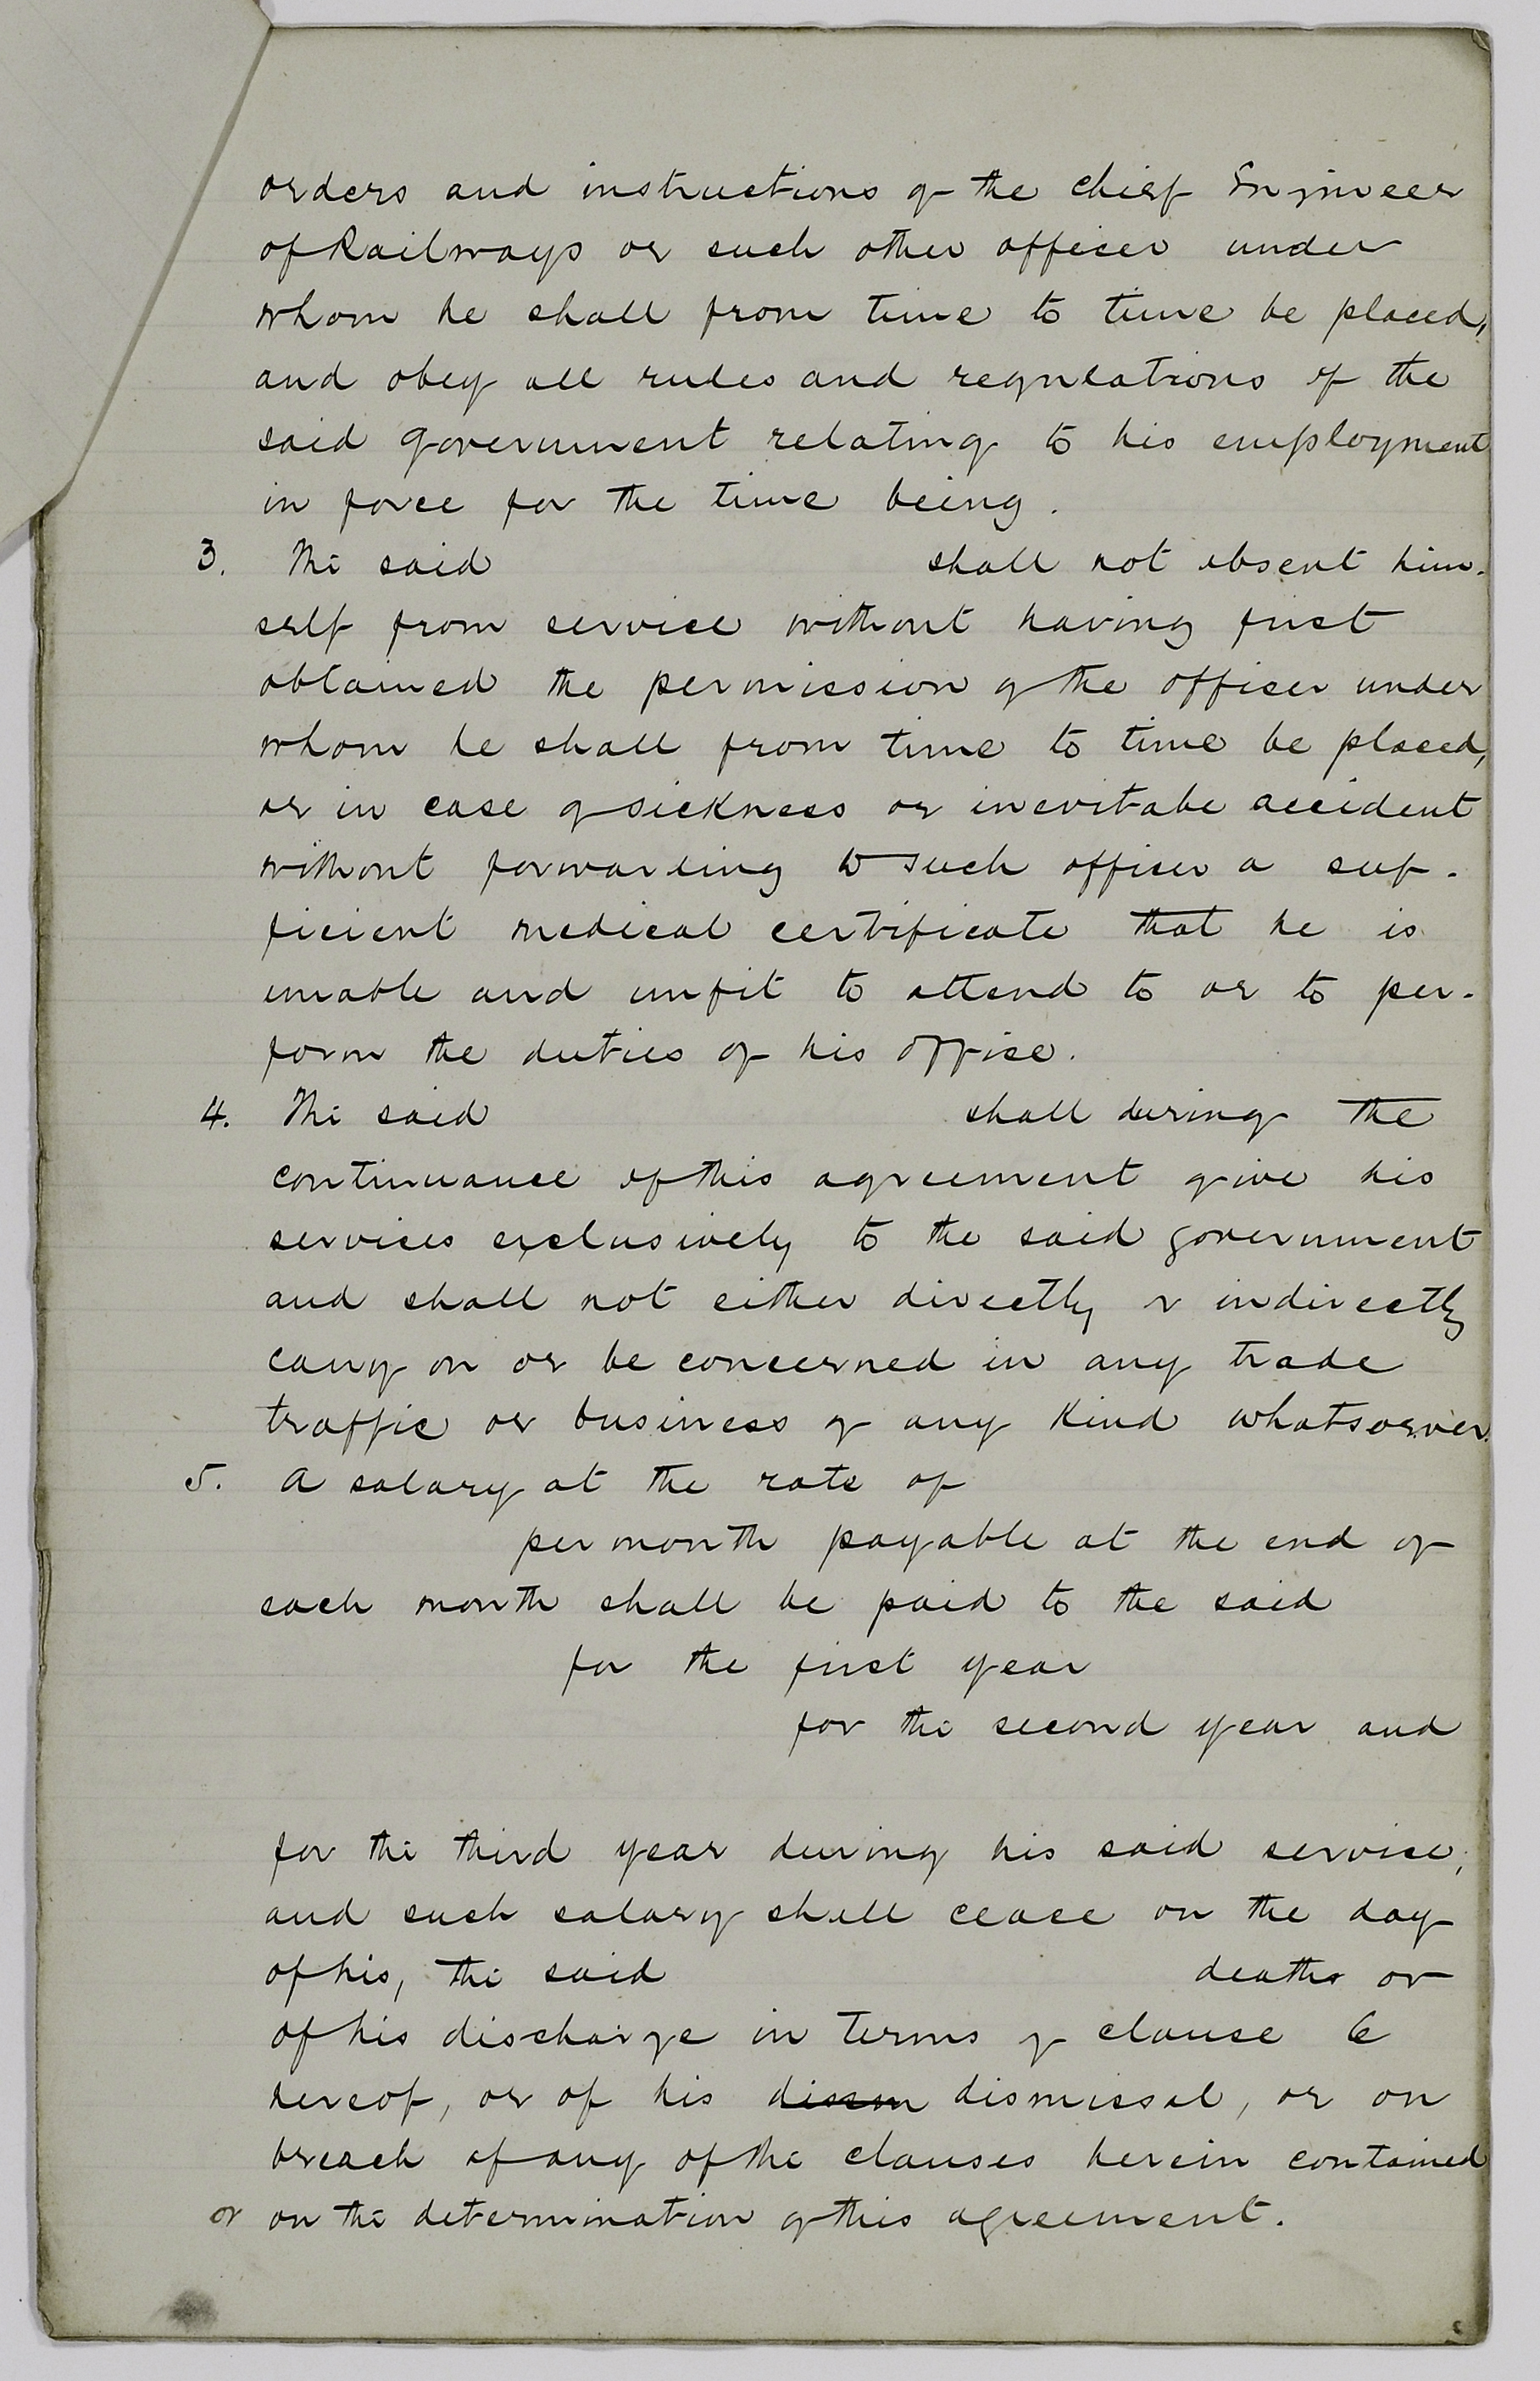 orders and instructions of the Chief Engineer
of Railways or such other officer under
whom he shall from time to time be placed,
and obey all rules and regulations of the
said Government relating to his employment
in force for the time being.
3. The said shall not absent him-
self from service without having first
obtained the permission of the officer under
whom he shall from time to time be placed,
or in case of sickness or inevitabe accident
without forwarding to such officer a suf-
ficient medical certificate that he is
unable and unfit to attend to or to per-
form the duties of his office.
4. The said shall during the
continuance of this agreement give his
services exclusively to the said Government
and shall not either directly or indirectly
carry on or be concerned in any trade
traffic or business of any kind whatsoever.
5. A salary at the rate of
per month payable at the end of
each month shall be paid to the said
for the first year
for the second year and
for the third year during his said service,
and such salary shall cease on the day
of his, the said death or
of his discharge in terms of clause 6
hereof, or of his dissm dismissal, or on
breach of any of the clauses herein contained
or on the determination of this agreement.